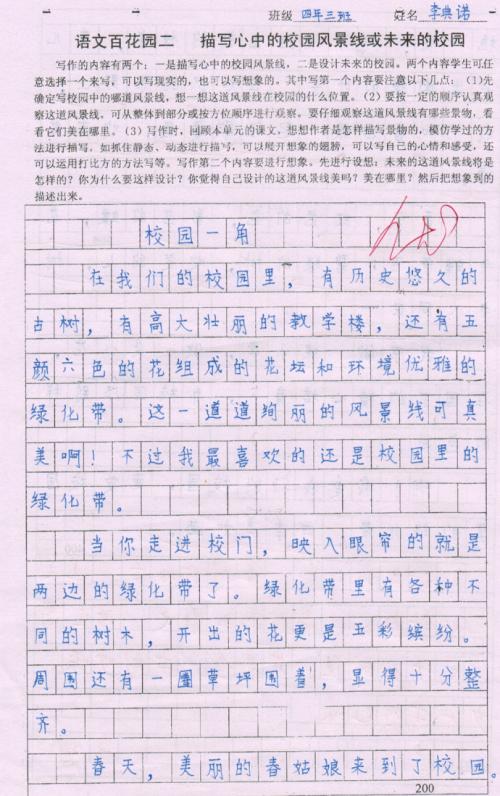 班级 四年三班 姓名 李典诺
语文百花园二 描写心中的校园风景线或未来的校园
写作的内容有两个：一是描写心中的校园风景线，二是设计未来的校园。两个内容学生可任
意选择一个来写，可以写现实的，也可以写想象的。其中写第一个内容要注意以下几点：(1)先
确定写校园中的哪道风景线，想一想这道风景线在校园的什么位置。(2)要按一定的顺序认真观
察这道风景线，可从整体到部分或按方位顺序进行观察。要仔细观察这道风景线有哪些景物，看
看它们美在哪里。(3)写作时，回顾本单元的课文，想想作者是怎样描写景物的，模仿学过的方
法进行描写。如抓住静态、动态进行描写，可以展开想象的翅膀，可以写自己的心情和感受，还
可以运用打比方的方法写等。写作第二个内容要进行想象。先进行设想：未来的这道风景线将是
怎样的？你为什么要这样设计？你觉得自己设计的这道风景线美吗？美在哪里？然后把想象到的
描述出来。
校园一角
在我们的校园里，有历史悠久的
古树，有高大壮丽的教学楼，还有五
颜六色的花组成的花坛和环境优雅的
绿化带。这一道道绚丽的风景线可真
美啊！不过我最喜欢的还是校园里的
绿化带。
当你走进校门，映入眼帘的就是
两边的绿化带了。绿化带里有各种不
同的树木，开出的花更是五彩缤纷。
周围还有一圈草坪围着，显得十分整
齐。
春天，美丽的春姑娘来到了校园。
200